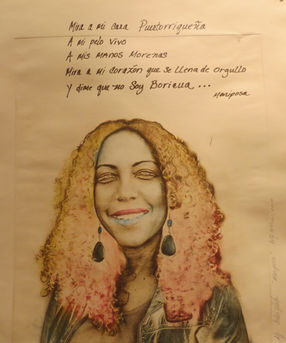 Mira a mi cara Puertorriqueña
A mi pelo vivo
A mis manos morenas
Mira a mi corazón que se llena de orgullo
Y dime que no soy Boricua...
Mariposa